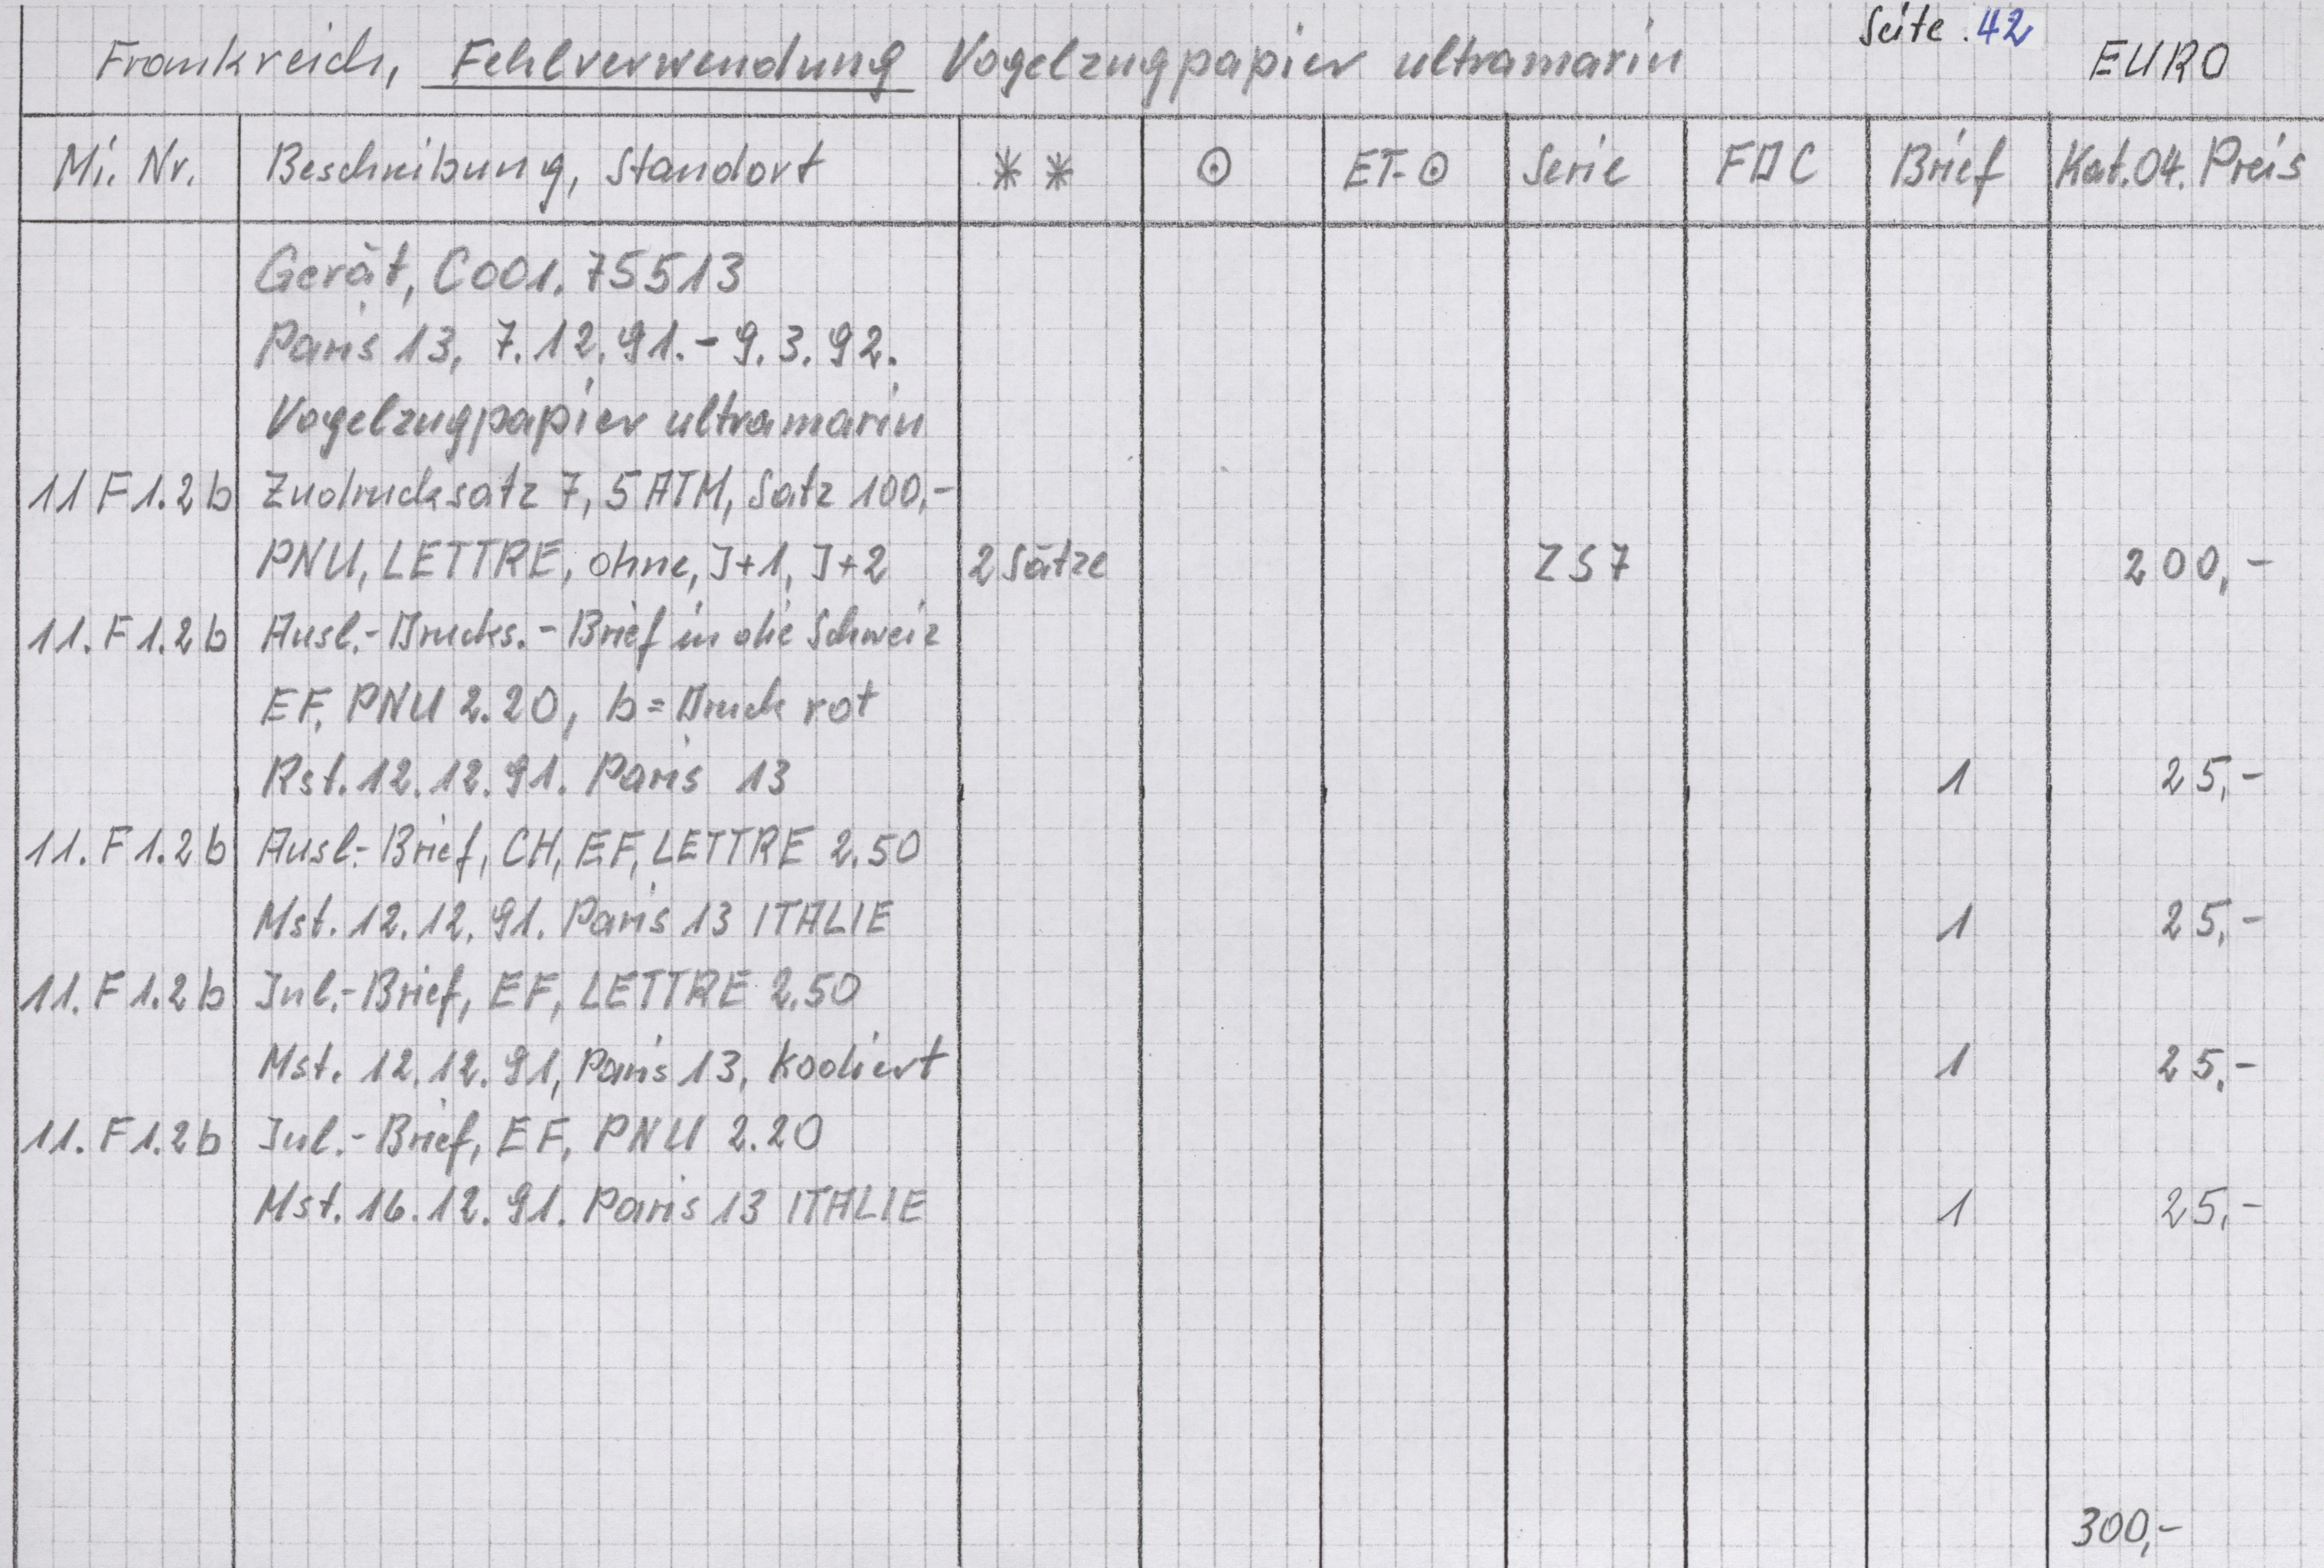 Seite . 42
Frankreich, Fehlverwendung Vogelzugpapier ultramarin EURO
Mi. Nr. Beschreibung, Standort ** ⊙ ET-⊙ Serie FDC Brief Kat.04. Preis
Gerät, C001.75513
Paris 13, 7.12.91.-9.3.92.
Vogelzugpapier ultramarin
11 F 1.2 b Zudrucksatz 7, 5 ATM, Satz 100,-
PNU, LETTRE, ohne, J+1, J+2 2 Sätze ZS7 200,-
11. F 1.2 b Ausl.-Drucks.-Brief in die Schweiz
EF, PNU 2.20, b = Druck rot
Rst. 12.12.91. Paris 13 1 25,-
11. F 1.2 b Ausl.-Brief, CH, EF, LETTRE 2.50
Mst. 12.12.91. Paris 13 ITALIE 1 25,-
11. F 1.2 b Inl.-Brief, EF, LETTRE 2.50
Mst. 12.12.91, Paris 13, Kodiert 1 25,-
11. F 1.2 b Inl.-Brief, EF, PNU 2.20
Mst. 16.12.91. Paris 13 ITALIE 1 25,-
300,-